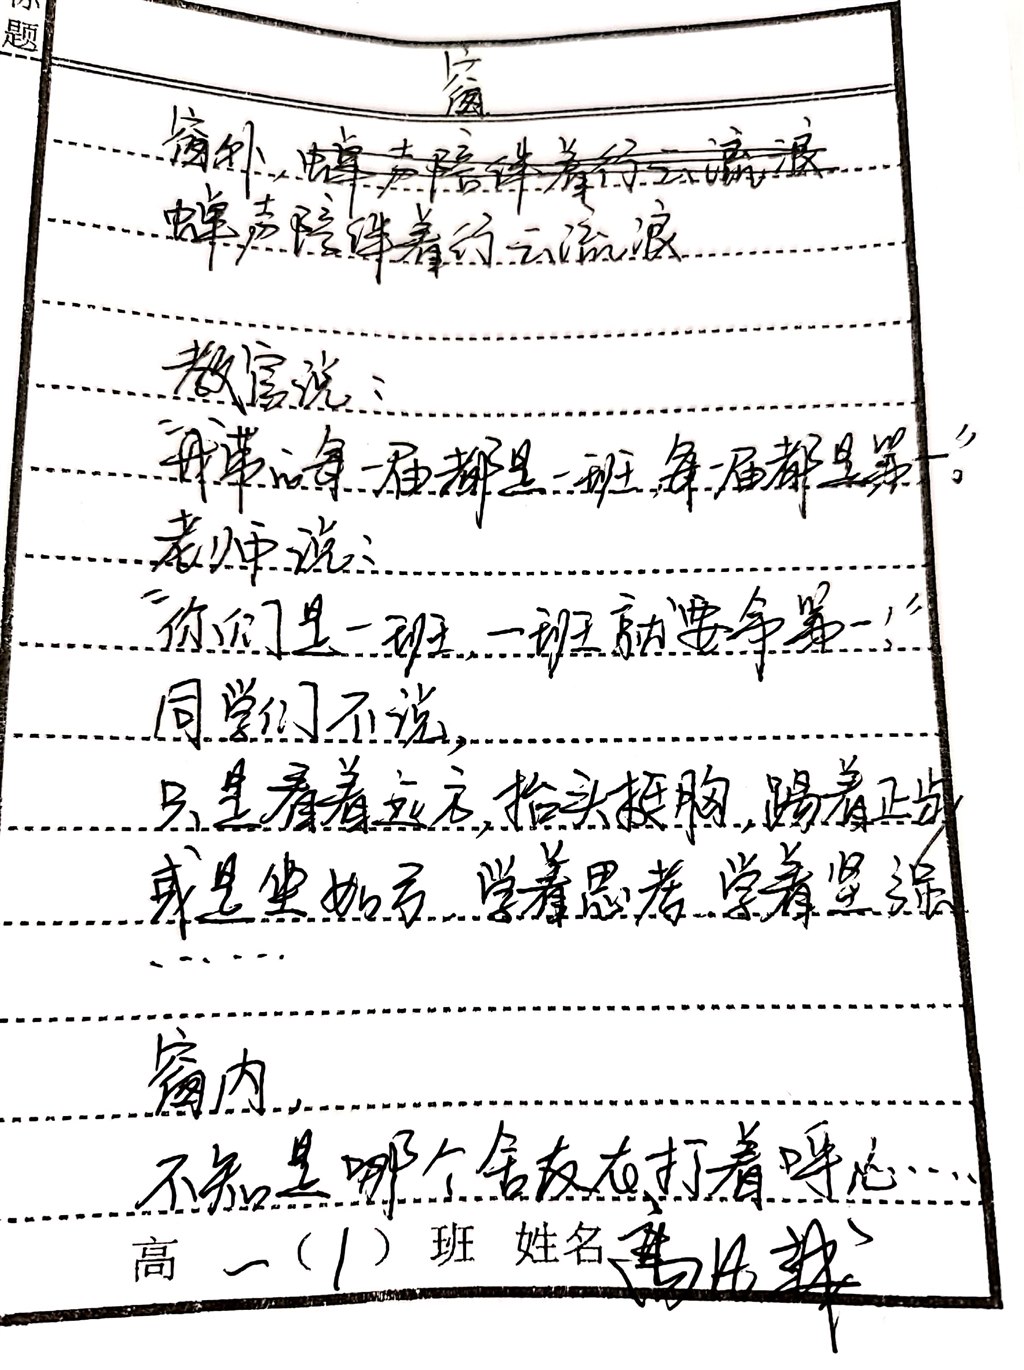 标
题
窗
窗外，蝉声陪伴着行云流浪
蝉声陪伴着行云流浪
教官说：
“我带的每一届都是一班，每一届都是第一”。
老师说：
“你们是一班，一班就要争第一！”
同学们不说，
只是看着远方，抬头挺胸，踢着正步
或是坐如弓，学着思考，学着坚强
……
窗内，
不知是哪个舍友在打着呼噜……
高一（1）班 姓名